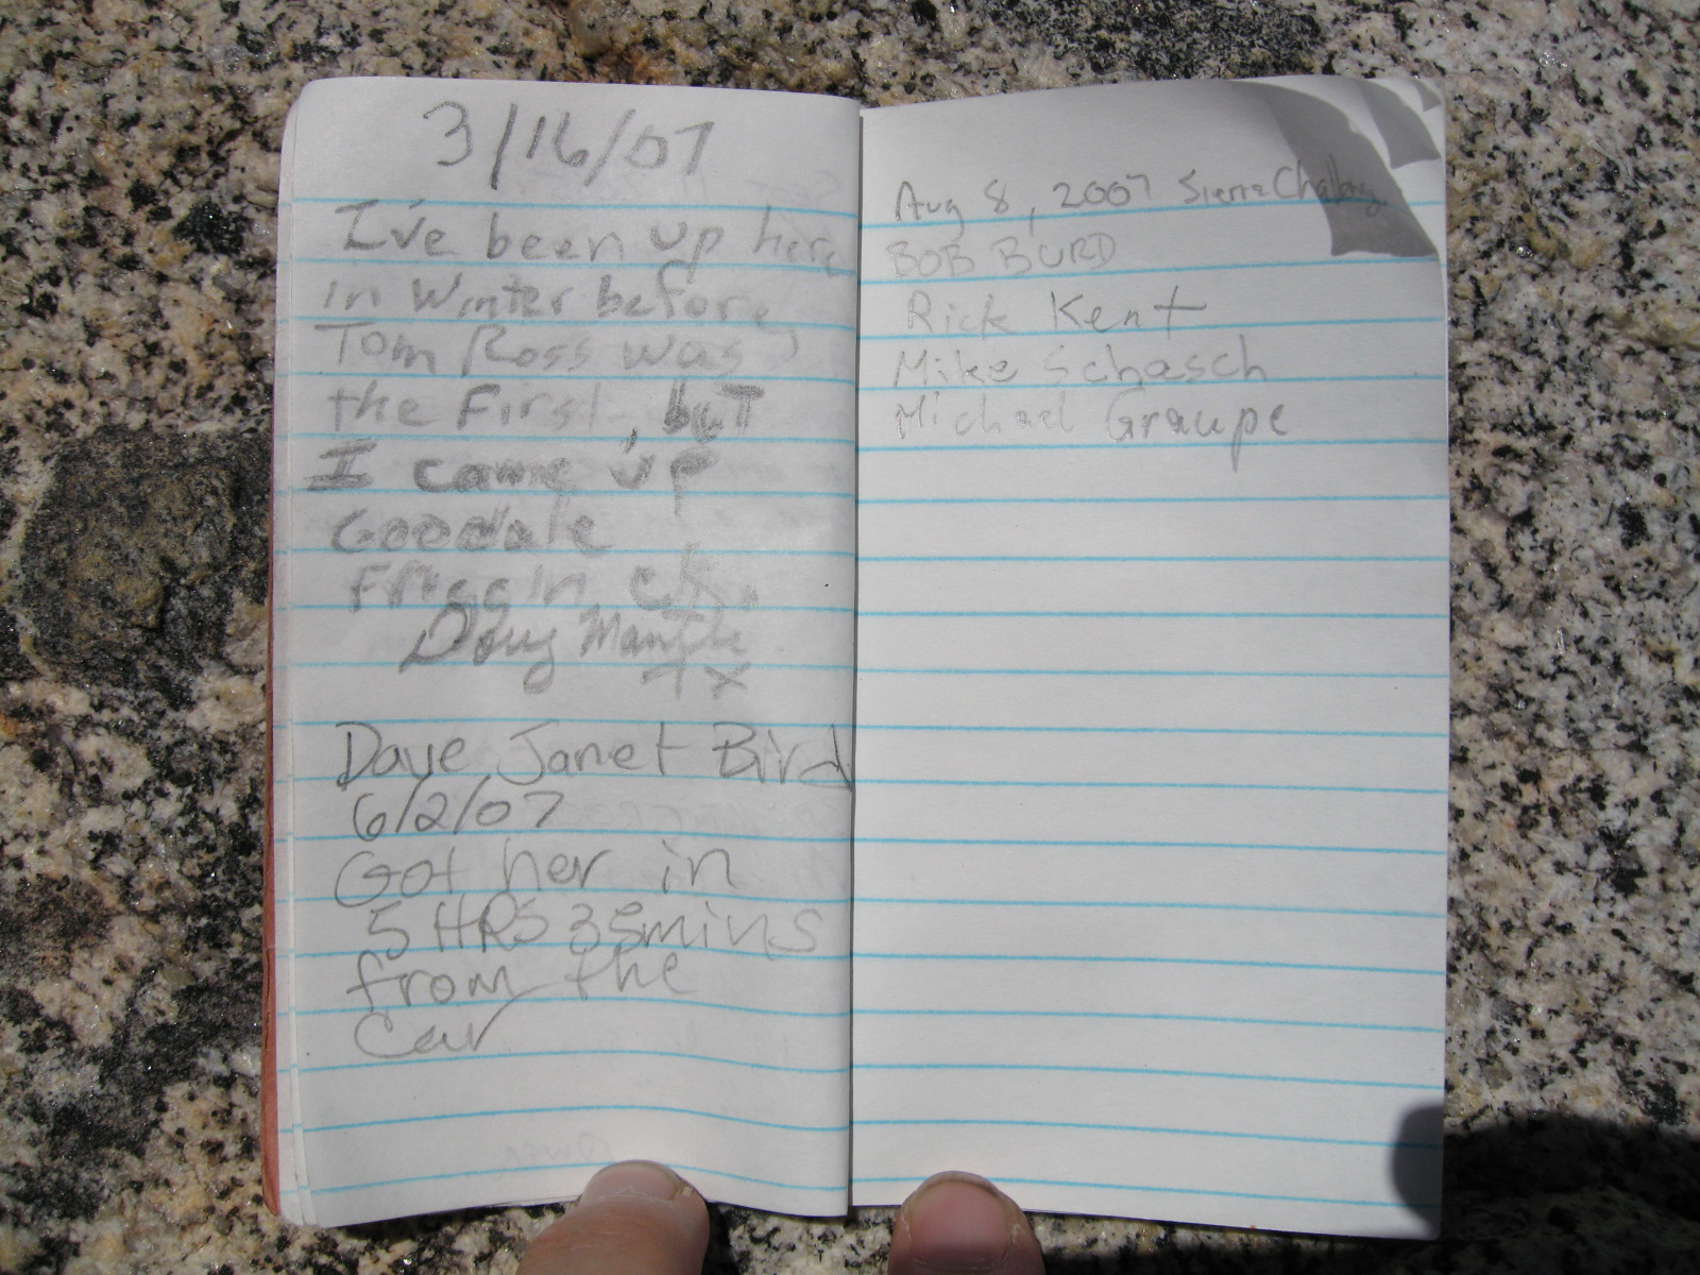 3/16/07
I've been up here
in Winter before,
Tom Ross was
the First, but
I came up
Goodale
Friggin ck.
Doug Mantle
7x
Dave Janet Bird
6/2/07
Got her in
5 HRS 35mins
from the
Car
Aug 8, 2007 Sierra Challenge
BOB BURD
Rick Kent
Mike Schasch
Michael Graupe